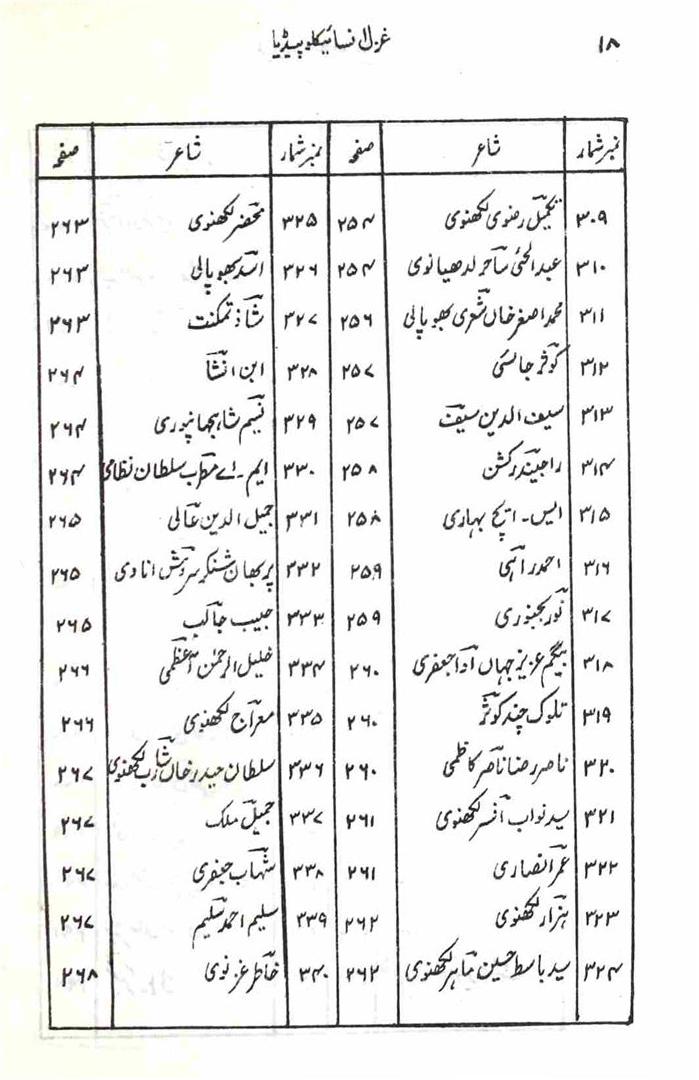 ۱۸ غزل انسائیکلوپیڈیا
نمبر شمار شاعر صفحہ نمبر شمار شاعر صفحہ
۳۰۹ تکمیل رضوی لکھنوی ۲۵۴ ۳۲۵ محضر لکھنوی ۲۶۳
۳۱۰ عبدالحئی ساحر لدھیانوی ۲۵۴ ۳۲۶ اسد بھوپالی ۲۶۳
۳۱۱ محمد اصغر خاں شعری بھوپالی ۲۵۶ ۳۲۷ شاذ تمکنت ۲۶۳
۳۱۲ کوثر جائسی ۲۵۷ ۳۲۸ ابن انشا ۲۶۴
۳۱۳ سیف الدین سیف ۲۵۷ ۳۲۹ نسیم شاہجہانپوری ۲۶۴
۳۱۴ راجیندر کشن ۲۵۸ ۳۳۰ ایم۔اے مطرب سلطان نظامی ۲۶۴
۳۱۵ ایس۔ایچ بہاری ۲۵۸ ۳۳۱ جمیل الدین عالی ۲۶۵
۳۱۶ احمد راہی ۲۵۹ ۳۳۲ پربھان شنکر سروش انادی ۲۶۵
۳۱۷ نور بجنوری ۲۵۹ ۳۳۳ حبیب جالب ۲۶۵
۳۱۸ بیگم عزیز جہاں ادا جعفری ۲۶۰ ۳۳۴ خلیل الرحمٰن اعظمی ۲۶۶
۳۱۹ تلوک چند کوثر ۲۶۰ ۳۳۵ معراج لکھنوی ۲۶۶
۳۲۰ ناصر رضا ناصر کاظمی ۲۶۰ ۳۳۶ سلطان حیدر خاں شارب لکھنوی ۲۶۷
۳۲۱ سید نواب افسر لکھنوی ۲۶۱ ۳۳۷ جمیل ملک ۲۶۷
۳۲۲ عمر انصاری ۲۶۱ ۳۳۸ شہاب جعفری ۲۶۷
۳۲۳ ہزار لکھنوی ۲۶۲ ۳۳۹ سلیم احمد سلیم ۲۶۷
۳۲۴ سید باسط حسین ماہر لکھنوی ۲۶۲ ۳۴۰ خاطر غزنوی ۲۶۸